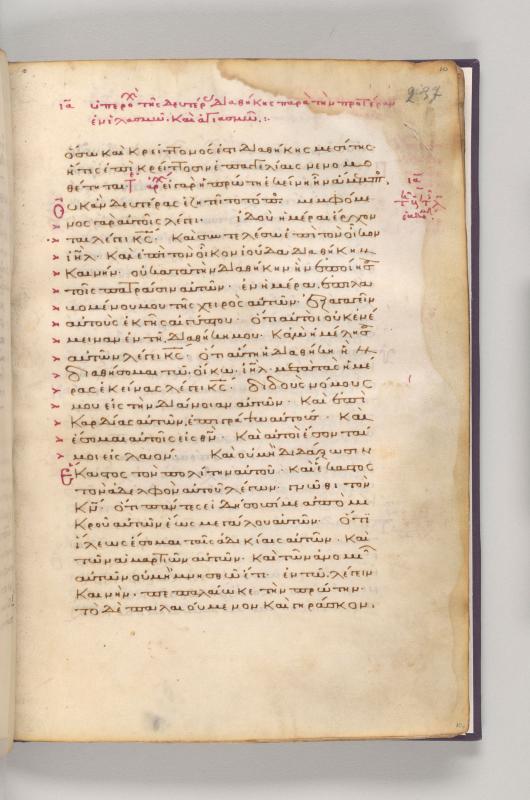 ια ὑπεροχὴ τῆς δευτέρας διαθήκης παρὰ τὴν προτέραν
ἐν ἱλασμῶ. καὶ ἁγιασμῶ.:
237
ὅσω καὶ κρείττονος ἐστὶ διαθήκης μεσίτης·
ἥτις ἐπὶ κρείττοσιν ἐπαγγελίαις νενομο
θέτηται· εἰ γὰρ ἡ πρώτη ἐκείνη ἦν ἄμεμπτος,
οὐκ ἂν δευτέρας ἐζητεῖτο τόπος. μεμφόμε
νος γὰρ αὐτοῖς λέγει· ἰδοὺ ἡμέραι ἔρχον
ται λέγει κς· καὶ συντελέσω ἐπὶ τὸν οἶκον
ιηλ. καὶ ἐπὶ τὸν οἶκον ἰούδα διαθήκην
καινήν. οὐ κατὰ τὴν διαθήκην ἣν ἐποίησα
τοῖς πατράσιν αὐτῶν. ἐν ἡμέρα ἐπιλα
βομένου μου τῆς χειρὸς αὐτῶν ἐξαγαγεῖν
αὐτοὺς ἐκ γῆς αἰγύπτου. ὅτι αὐτοὶ οὐκ ἐνέ
μειναν ἐν τῆ διαθήκη μου. κἀγὼ ἠμέλησα
αὐτῶν λέγει κς· ὅτι αὕτη ἡ διαθήκη ἣν
διαθήσομαι τῶ οἴκω ιηλ. μετὰ τὰς ἡμέ
ρας ἐκείνας λέγει κς· διδοὺς νόμους
μου εἰς τὴν διάνοιαν αὐτῶν. καὶ ἐπὶ
καρδίας αὐτῶν ἐπιγράψω αὐτούς. καὶ
ἔσομαι αὐτοῖς εἰς θν. καὶ αὐτοὶ ἔσονταί
μοι εἰς λαόν. καὶ οὐ μὴ διδάξωσιν
ἕκαστος τὸν πολίτην αὐτοῦ. καὶ ἕκαστος
τὸν ἀδελφὸν αὐτοῦ λέγων. γνῶθι τὸν
κν. ὅτι πάντες εἰδήσουσί με ἀπὸ μι
κροῦ αὐτῶν ἕως μεγάλου αὐτῶν. ὅτι
ἵλεως ἔσομαι ταῖς ἀδικίαις αὐτῶν. καὶ
τῶν ἁμαρτιῶν αὐτῶν. καὶ τῶν ἀνομιῶν
αὐτῶν οὐ μὴ μνησθῶ ἔτι. ἐν τῶ λέγειν
καινήν. πεπαλαίωκε τὴν πρώτην·
τὸ δὲ παλαιούμενον καὶ γηράσκον.